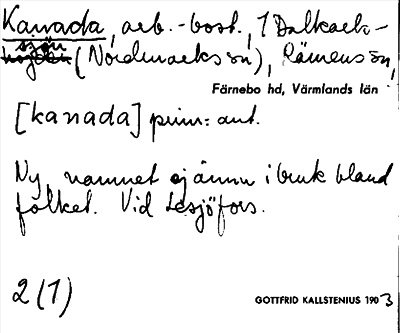 Kanada, arb.-bost., i Dalkarls-
sjön (Nordmarks sn), Rämens sn,
Färnebo hd, Värmlands län
[kanada] prim: aut.
Ny, namnet ej ännu i bruk bland
folket. Vid Lesjöfors.
2(1)
GOTTFRID KALLSTENIUS 1903